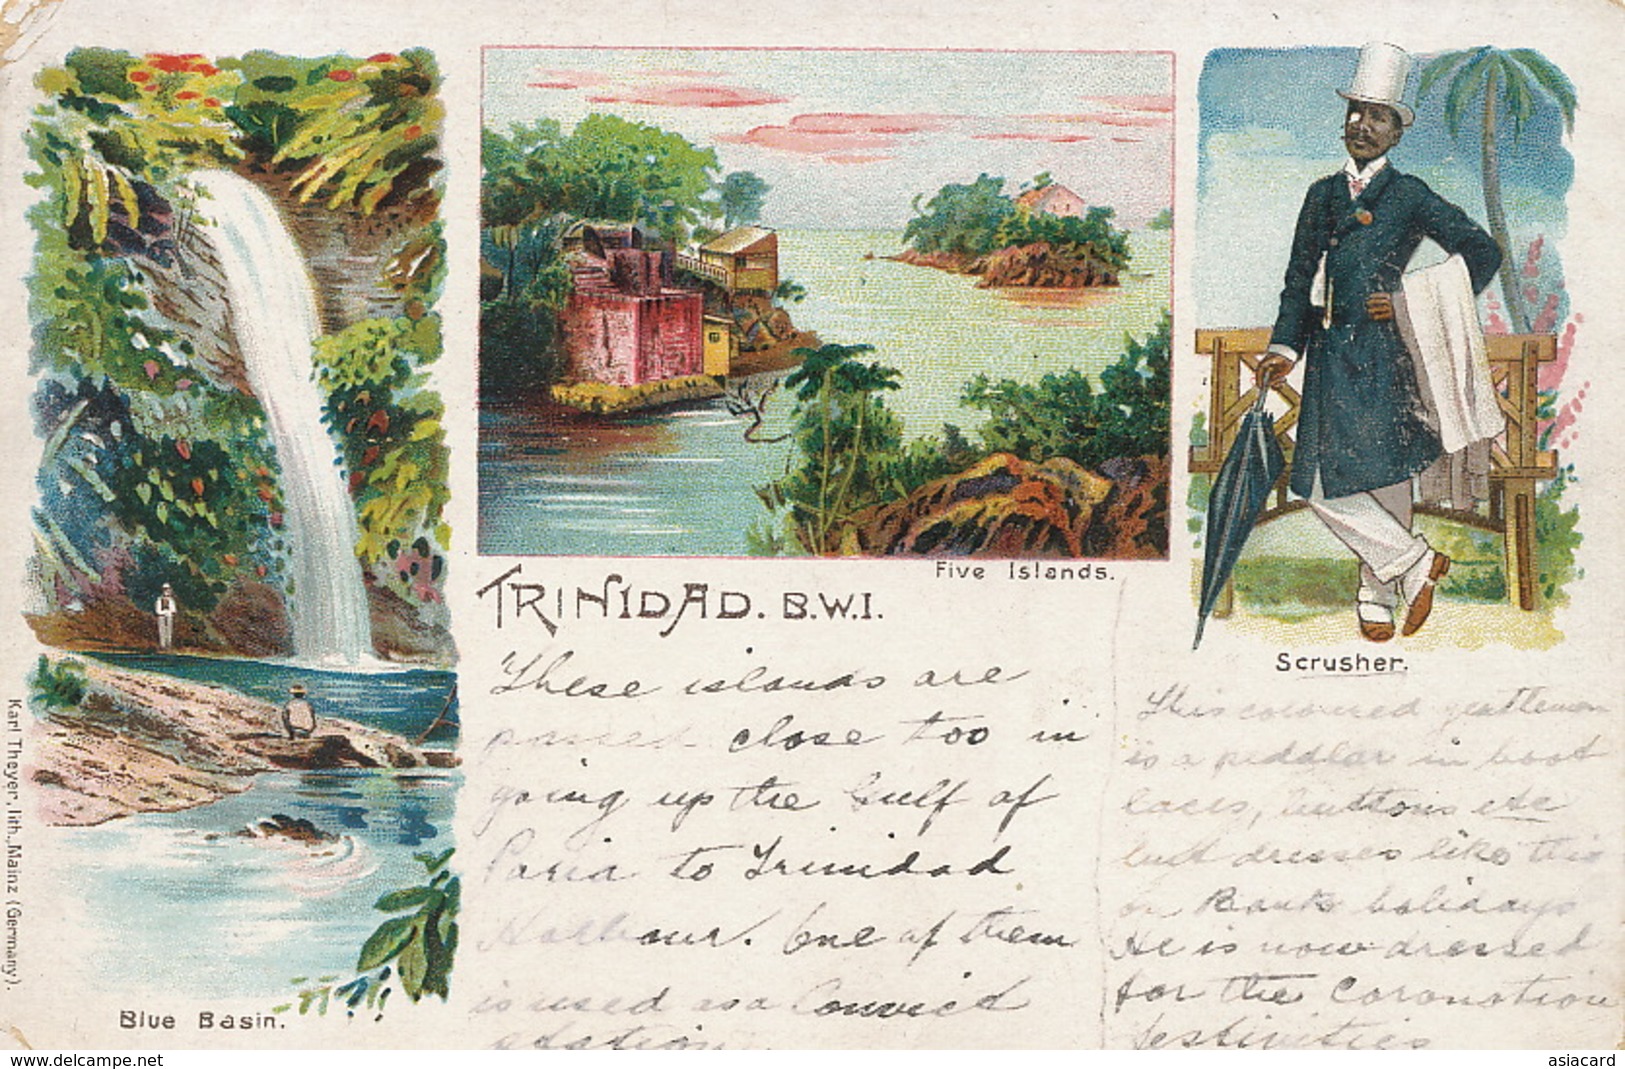 Five Islands.
TRINIDAD. B.W.I.
These islands are
passed close too in
going up the Gulf of
Paria to Trinidad
Harbour. One of them
is used as a Convict
station.
Scrusher.
This coloured gentleman
is a peddlar in boot
laces, buttons etc
but dresses like this
on Bank holidays
He is now dressed
for the Coronation
festivities
Blue Basin.
Karl Theyer, lith., Mainz (Germany).
www.delcampe.net
asiacard